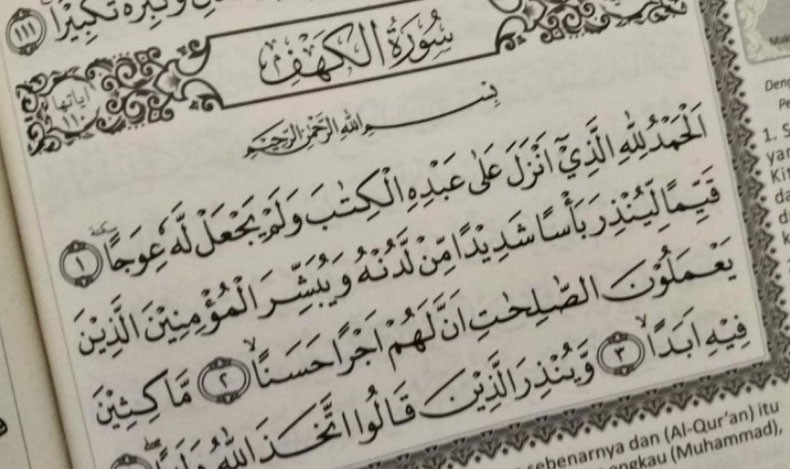 وَكَبِّرْهُ تَكْبِيْرًا ١١١
سُوْرَةُ الْكَهْفِ
اٰيَاتُهَا ١١٠
بِسْمِ اللّٰهِ الرَّحْمٰنِ الرَّحِيْمِ
اَلْحَمْدُ لِلّٰهِ الَّذِيْٓ اَنْزَلَ عَلٰى عَبْدِهِ الْكِتٰبَ وَلَمْ يَجْعَلْ لَّهٗ عِوَجًا ۜ ١
قَيِّمًا لِّيُنْذِرَ بَأْسًا شَدِيْدًا مِّنْ لَّدُنْهُ وَيُبَشِّرَ الْمُؤْمِنِيْنَ الَّذِيْنَ
يَعْمَلُوْنَ الصّٰلِحٰتِ اَنَّ لَهُمْ اَجْرًا حَسَنًاۙ ٢ مَّاكِثِيْنَ
فِيْهِ اَبَدًاۙ ٣ وَّيُنْذِرَ الَّذِيْنَ قَالُوا اتَّخَذَ اللّٰهُ وَلَدًا
Mak
Deng
Pe
1. S
yan
Kit
da
d
k
sebenarnya dan (Al-Qur'an) itu
engkau (Muhammad),